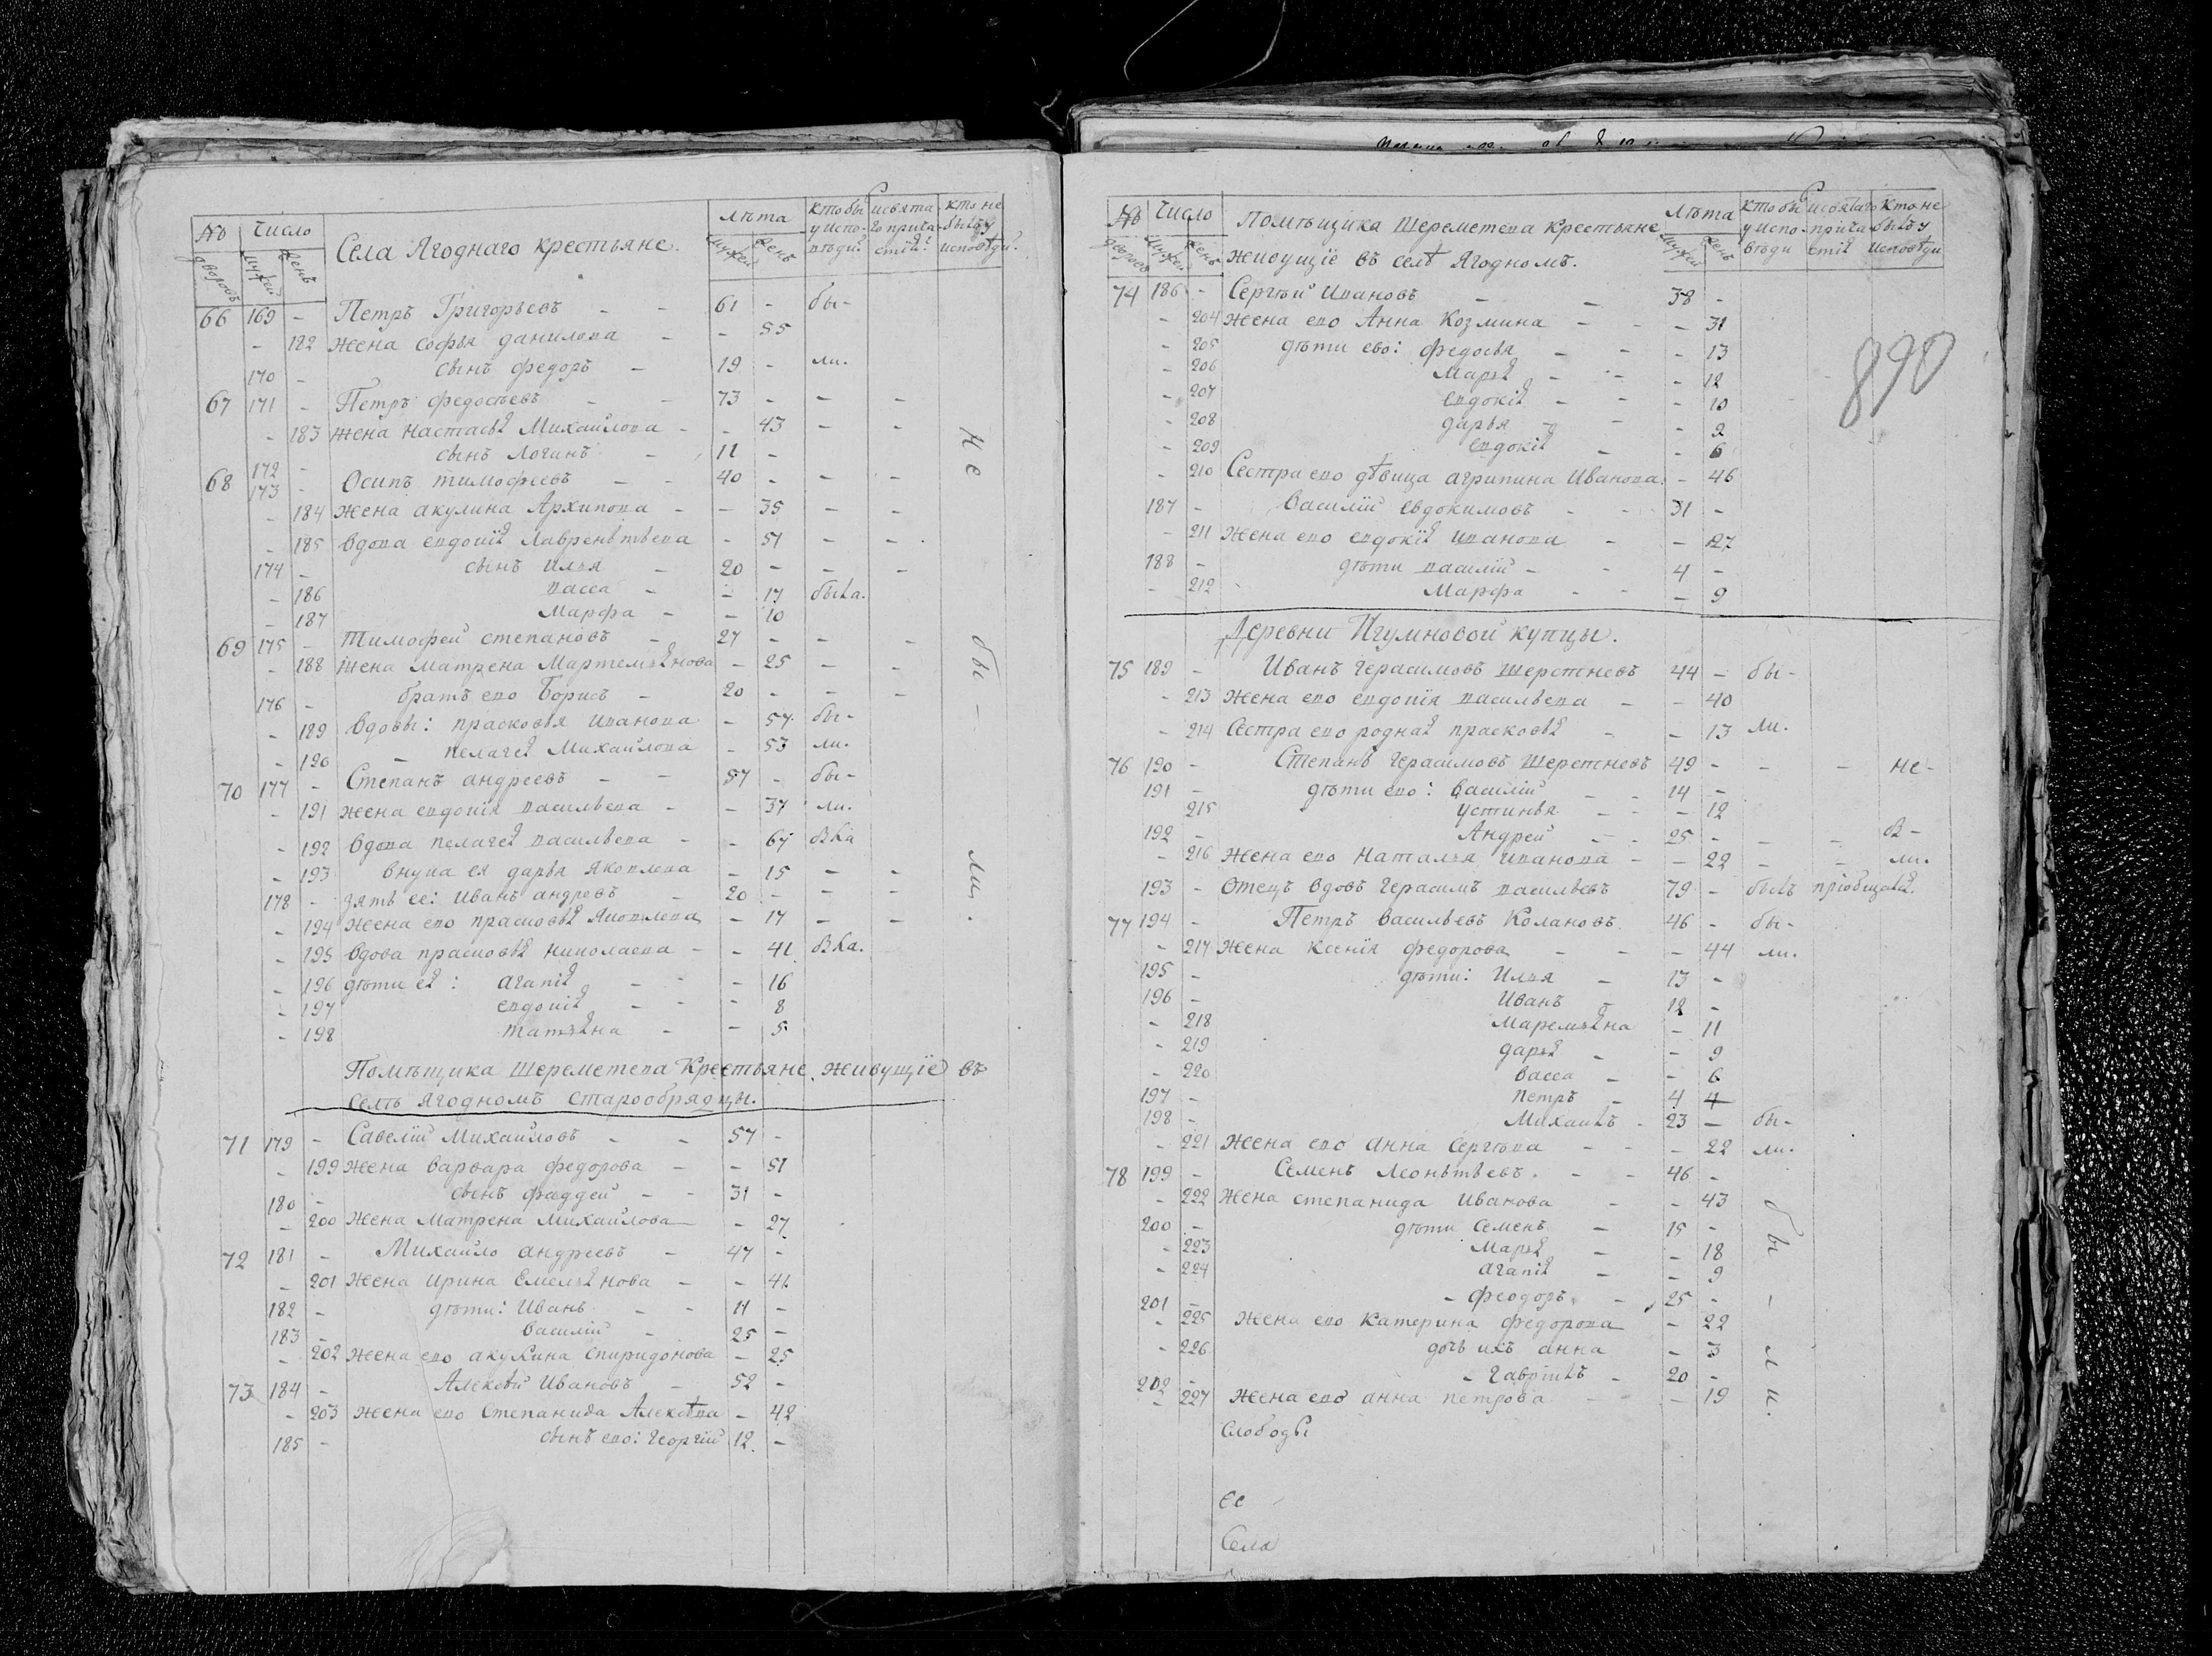 № Число Села Ягоднаго крестьяне. лѣта кто бы у испо-вѣди и свята-го прича-стiя кто не былъ у исповѣди.
дворовъ мужей женъ мужей женъ
66 169 - Петръ Григорьевъ - - 61 - бы-
- 182 жена софья данилова - - 55
170 - сынъ федоръ - 19 - ли.
67 171 - Петръ федосѣевъ - - 73 - - -
- 183 жена настасья Михайлова - - 43 - -
172 - сынъ логинъ - 11 -
68 173 - Осипъ тимофеевъ - - 40 - - -
- 184 жена акулина Архипова - - 35 - -
- 185 вдова евдокiя лаврентьева - 51 - -
174 - сынъ илья - 20 - - -
- 186 васса - - 17 была.
- 187 марфа - - 10
69 175 - тимофей степановъ - 27 - - -
- 188 жена матрена Мартемьянова - 25 - -
176 - братъ ево борисъ - 20 - - -
- 189 вдовы: прасковья иванова - 57 бы-
- 190 - пелагея михайлова - 53 ли.
70 177 - Степанъ андреевъ - - 57 - бы-
- 191 жена евдокiя васильева - - 37 ли.
- 192 вдова пелагея васильева - - 67 была
- 193 внука ея дарья яковлева - 15 - -
178 - зять ее: иванъ андревъ - 20 - - -
- 194 жена ево прасковья яковлева - 17 - -
- 195 вдова прасковья николаева - - 41 была.
- 196 дѣти ея: агапiя - - - 16
- 197 евдокiя - - - 8
- 198 татьяна - - 5
не бы - ли.
Помѣщика Шереметева Крестьяне, живущiе въ
селѣ ягодномъ старообрядцы.
71 179 - Савелiй Михайловъ - - 57 -
- 199 жена варвара федорова - - 51
180 - сынъ фаддей - - 31 -
- 200 жена матрена михайлова - 27
72 181 - Михайло андреевъ - 47 -
- 201 жена ирина Емельянова - - 41
182 - дѣти: Иванъ - - 11 -
183 - василiй - 25 -
- 202 жена ево акулина спиридонова - 25
73 184 - Алексѣй Ивановъ - 52 -
- 203 жена ево степанида Алексѣева - 42
185 - сынъ ево: георгiй 12. -
№ Число Помѣщика Шереметева крестьяне живущiе въ селѣ ягодномъ. лѣта кто бы у испо-вѣди и святаго прича-стiя кто не былъ у исповѣди
дворовъ мужей женъ мужей женъ
890
74 186 - Сергѣй Ивановъ - - 38 -
- 204 жена ево Анна козмина - - - 31
- 205 дѣти ево: федосья - - - 13
- 206 марья - - - 12
- 207 евдокiя - - - 10
- 208 дарья - - - 2
- 209 евдокiя - - 6
- 210 Сестра ево дѣвица агрипина Иванова. - 46
187 - василiй евдокимовъ - - 31 -
- 211 жена ево евдокiя иванова - - 27
188 - дѣти василiй - - 4 -
- 212 марфа - - - 9
Деревни Игумновой купцы.
75 189 - Иванъ герасимовъ шерстневъ 44 - бы-
- 213 жена ево евдокiя васильева - - 40
- 214 Сестра ево родная прасковья - - 13 ли.
76 190 - Степанъ герасимовъ шерстневъ 49 - - - не-
191 - дѣти ево: василiй - - 14 -
215 устинья - - - 12
192 - Андрей - - 25 - - - бы-
- 216 жена ево наталья иванова - - 22 - - ли.
193 - отецъ вдовъ герасимъ васильевъ 79 - былъ прiобщался.
77 194 - Петръ васильевъ колановъ 46 - бы-
- 217 жена ксенiя федорова - - - 44 ли.
195 - дѣти: Илья - 13 -
196 - иванъ - 12 -
- 218 маремьяна - 11
- 219 дарья - - 9
- 220 васса - - 6
197 - петръ - 4 4
198 - михаилъ - 23 - бы-
- 221 жена ево анна сергѣева - - - 22 ли.
78 199 - Семенъ леонтьевъ - - 46 -
- 222 жена степанида иванова - - 43
200 - дѣти семенъ - 15 -
- 223 марья - - 18
- 224 агапiя - - 9
201 - - феодоръ - 25 -
- 225 жена ево катерина федорова - 22
- 226 дочь ихъ анна - 3
202 - - гаврiилъ - 20 -
- 227 жена ево анна петрова - - - 19
бы - ли.
слободы
ее
села